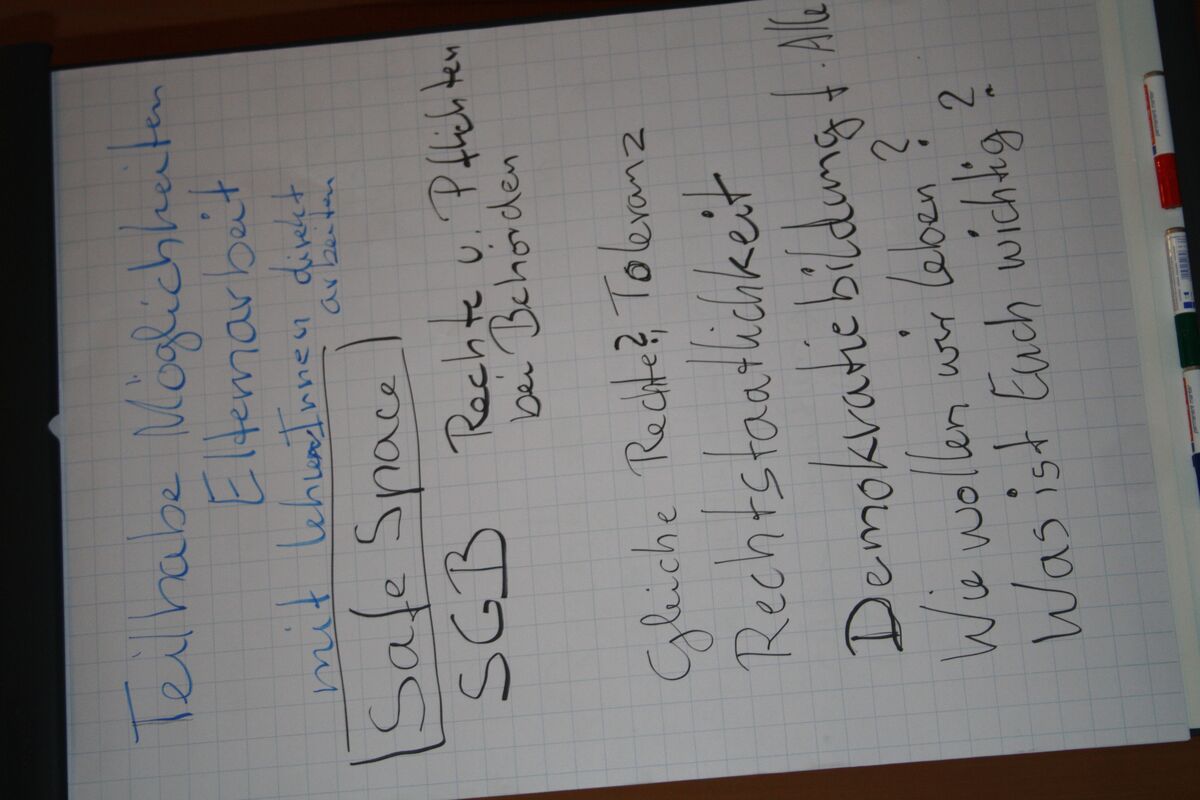 Teilhabe Möglichkeiten
Elternarbeit
mit LehrerInnen direkt
arbeiten
Safe Space
SGB Rechte u. Pflichten
bei Behörden
Gleiche Rechte? Toleranz
Rechtstaatlichkeit
Demokratiebildung f. Alle
Wie wollen wir leben?
Was ist Euch wichtig?